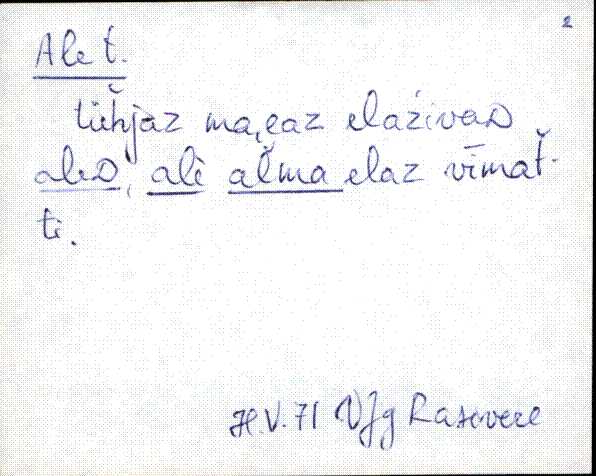 2
Ale t.
tühjaz ma, eaz elaživad
aled, alè alma elaz vīmat̆-
ti.
V.71 VJg Rasivere